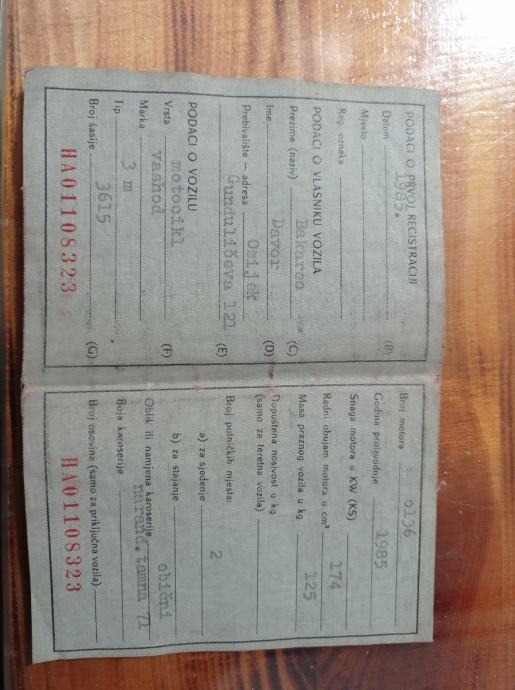 PODACI O PRVOJ REGISTRACIJI
Datum 1985. (B)
Mjesto
Reg. oznaka
PODACI O VLASNIKU VOZILA
Prezime (naziv) Bakarec (C)
Ime Davor (D)
Prebivalište — adresa Osijek
Gundulićeva 121 (E)
PODACI O VOZILU
Vrsta motocikl (F)
Marka vashod
Tip 3 m
Broj šasije 3615 (G)
HA01108323
Broj motora 0136
Godina proizvodnje 1985
Snaga motora u KW (KS)
Radni obujam motora u cm³ 174
Masa praznog vozila u kg 125
Dopuštena nosivost u kg
(samo za teretna vozila)
Broj putničkih mjesta:
a) za sjedenje 2
b) za stajanje
Oblik ili namjena karoserije obični
Boja karoserije narand.tamna 71
Broj osovina (samo za priključna vozila)
HA01108323